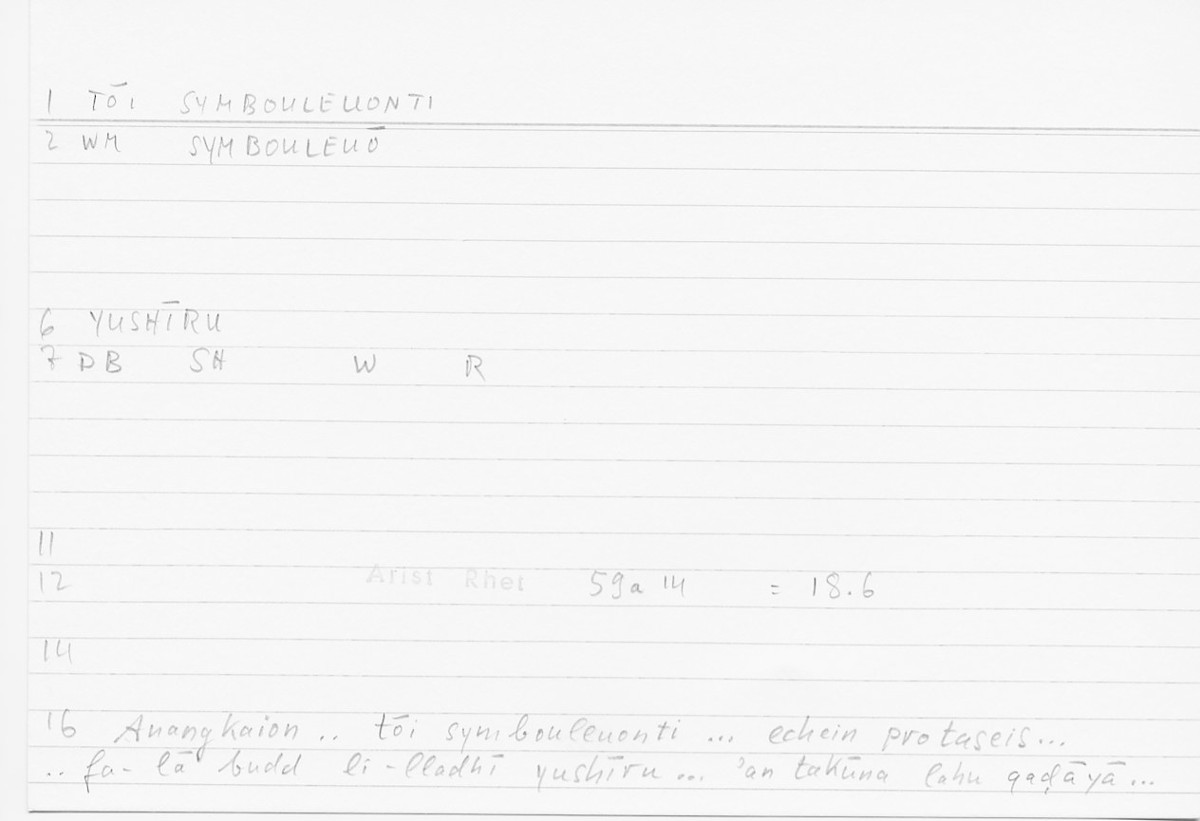 1 TŌI SYMBOULEUONTI
2 WM SYMBOULEUŌ
6 YUSHĪRU
7 DB SH W R
11
12 Arist Rhet 59a 14 = 18.6
14
16 Anangkaion .. tōi symbouleuonti ... echein protaseis...
.. fa-lā budd li-lladhī yushīru ... 'an takūna lahu qaḍāyā ...